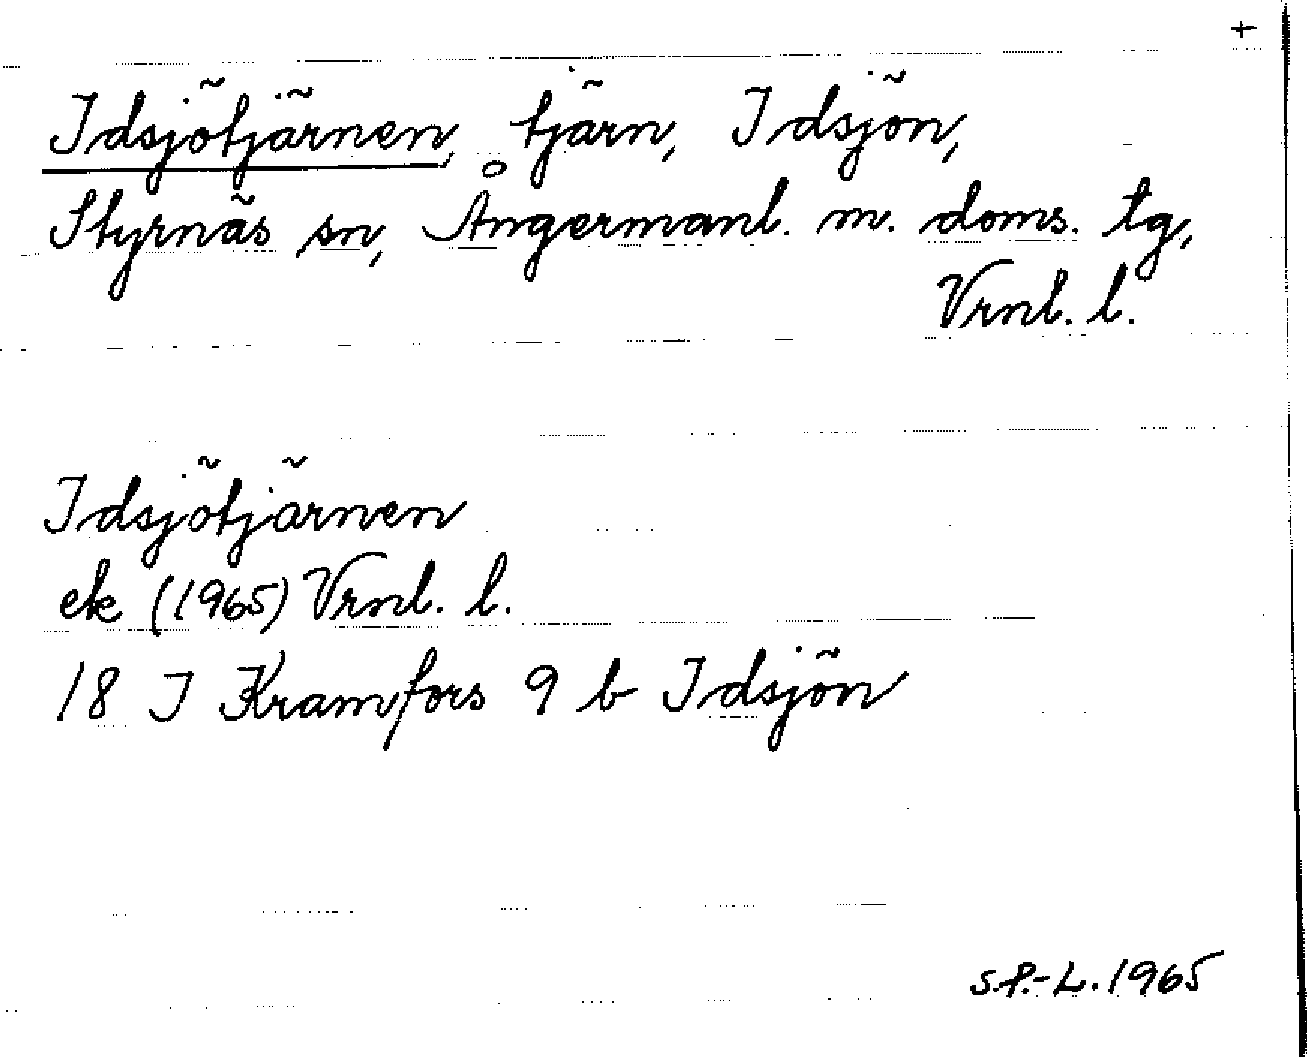 +
Idsjötjärnen, tjärn, Idsjön,
Styrnäs sn, Ångermanl. m. doms. tg,
Vrnl. l.
Idsjötjärnen
ek (1965) Vrnl. l.
18 I Kramfors 9 b Idsjön
S.P.-L. 1965